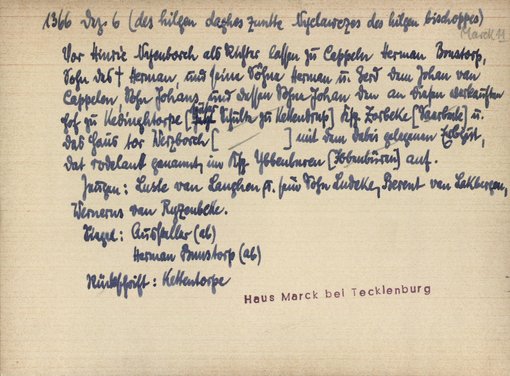 1366 Dez. 6 (des hilgen daghes sunte Nyclawezes des hilgen bischoppes)
Marck 11
Vor Hinric Nyenborch als Richter lassen zu Cappeln Herman Brnstorp,
Sohn des † Herman, und seine Söhne Herman u. Gerd dem Johan van
Cappelen, Sohn Johans, und dessen Sohne Johan den an diesen verkauften
Hof zu Kedinghtorpe [jetzt Schulte zu Kettendrup] Ksp. Zorbeke [Saerbeck] u.
das Haus tor Werzborch [ ] mit dem dabei gelegenen Erbgut,
dat rodelant genannt, im Ksp. Ybbenburen [Ibbenbüren] auf.
Zeugen: Luste van Langhen u. sein Sohn Ludeke, Berent van Lakbergen,
Wernerus van Ryzenbeke.
Siegel: Aussteller (ab)
Herman Brunstorp (ab)
Rückschrift: Kettentorpe
Haus Marck bei Tecklenburg